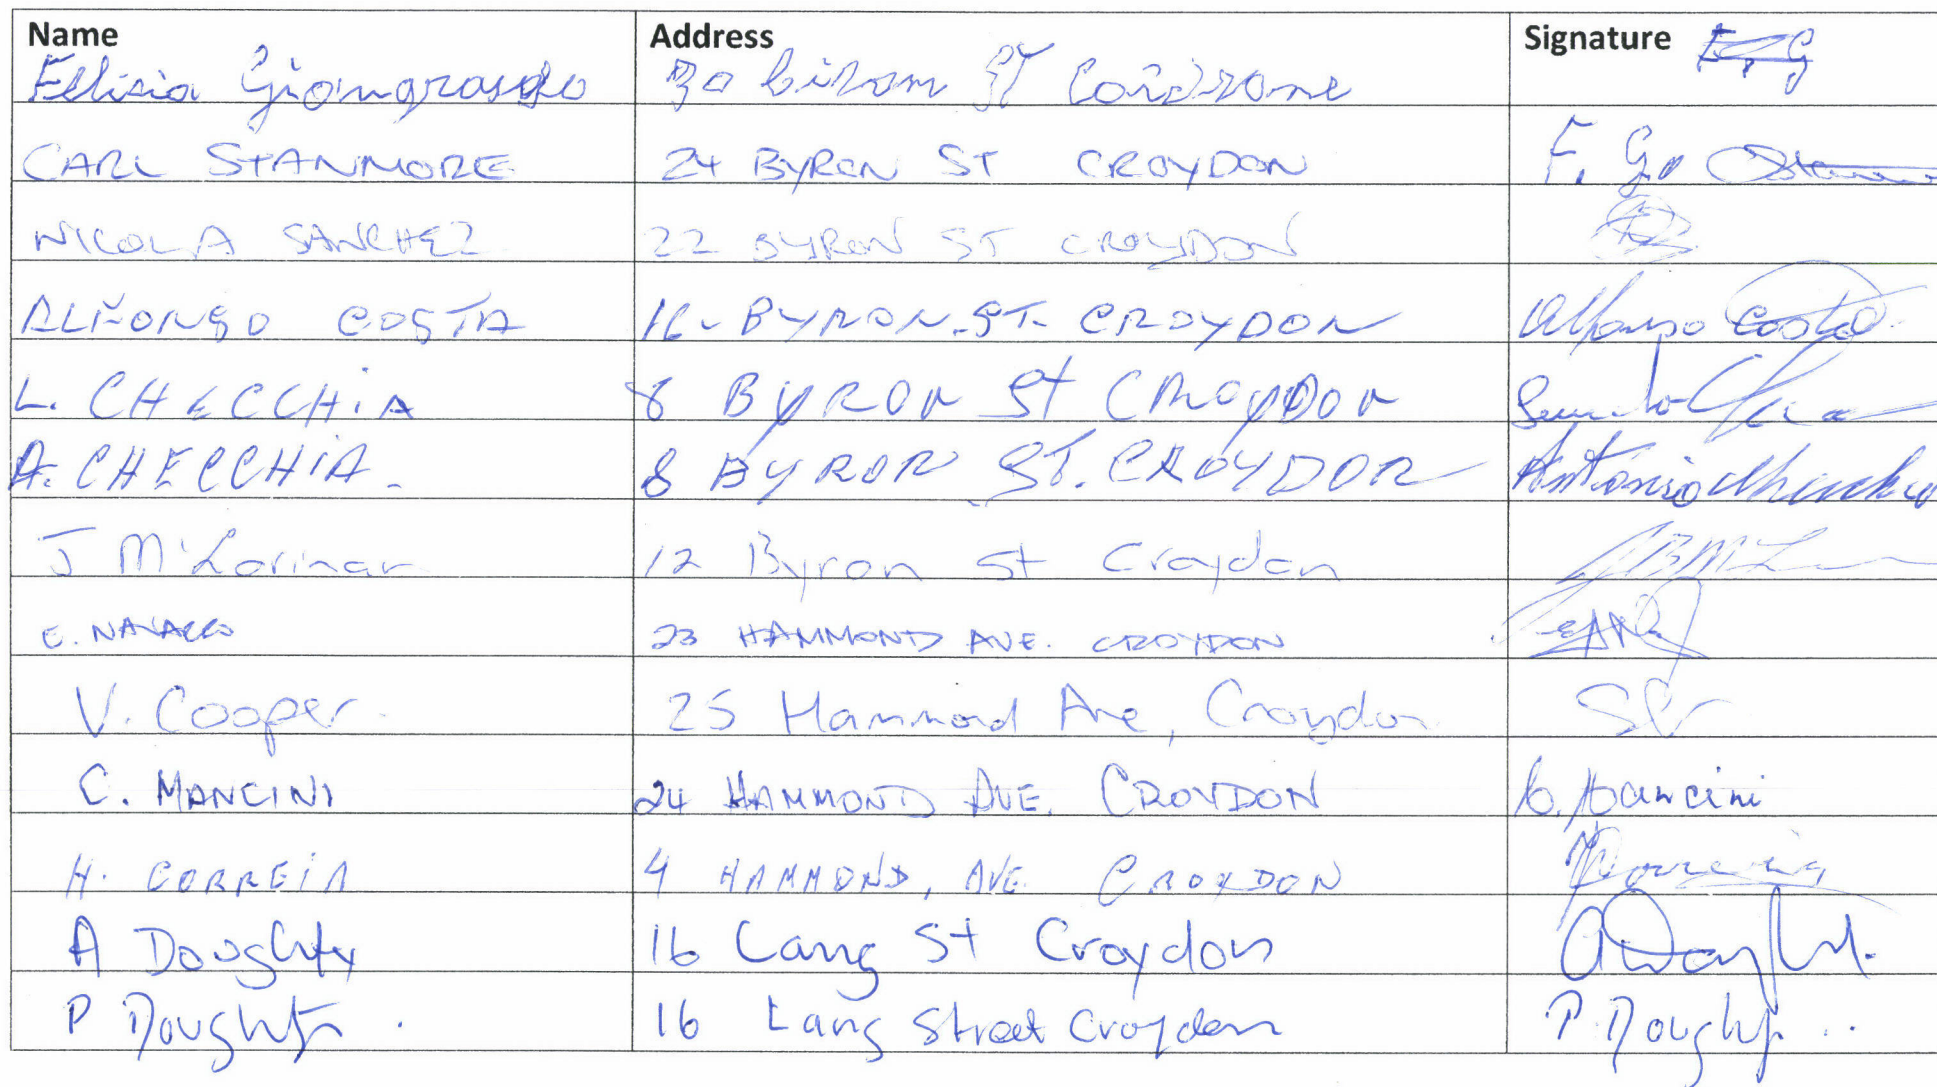 Name Address Signature
Ellisia Giongrasso 30 biron ST Coridrone F. G
CARL STANMORE 24 BYRON ST CROYDON F. G
NICOLA SANCHEZ 22 BYRON ST CROYDON
ALFONSO COSTA 16 - BYRON - ST. CROYDON Alfonso Costa
L. CHECCHiA 8 BYRON St CROYDON
A. CHECCHiA. 8 BYRON ST. CROYDON Antonio
J 12 Byron St Croydon
E. NAVARRO 23 HAMMOND AVE. CROYDON
V. Cooper. 25 Hammond Ave, Croydon
C. MANCINI 24 HAMMOND AVE. CROYDON C. Mancini
H. CORREiA 4 HAMMOND, AVE. CROYDON
A Doughty 16 Lang St Croydon A Doughty.
P Doughty. 16 Lang Street Croydon P. Doughty..